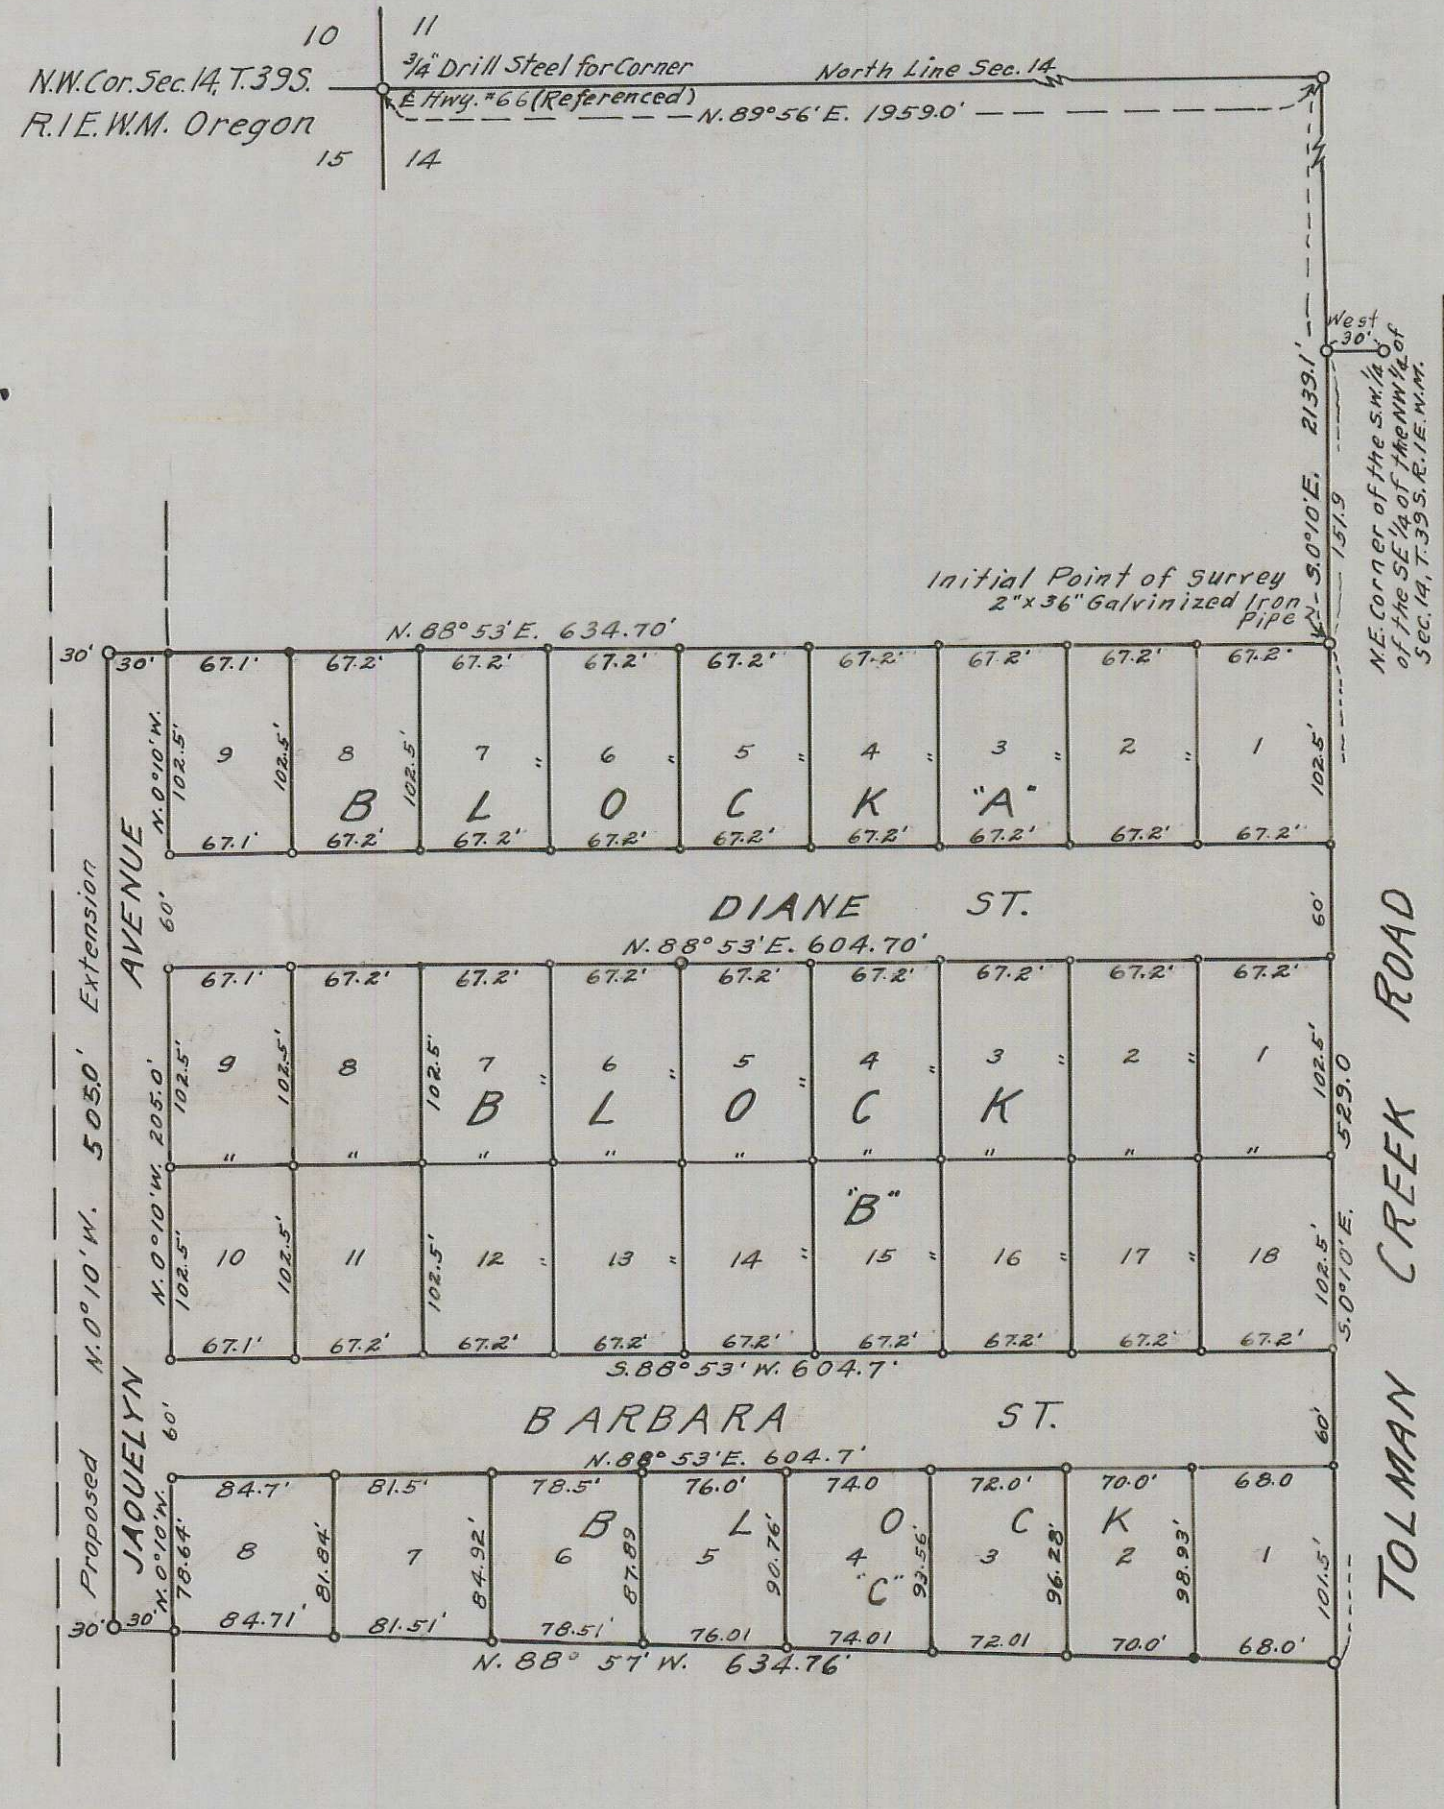 10 11
N.W. Cor. Sec. 14, T. 39 S.
R. 1 E. W.M. Oregon
3/4" Drill Steel for Corner
℄ Hwy. #66 (Referenced)
North Line Sec. 14
N. 89° 56' E. 1959.0'
15 14
West
30'
S. 0° 10' E. 2139.1'
151.9
N.E. Corner of the S.W. 1/4
of the SE 1/4 of the NW 1/4 of
Sec. 14, T. 39 S. R. 1 E. W.M.
Initial Point of Survey
2" x 36" Galvinized Iron
Pipe
N. 88° 53' E. 634.70'
30' 30' 67.1' 67.2' 67.2' 67.2' 67.2' 67.2' 67.2' 67.2' 67.2'
N. 0° 10' W.
102.5' 102.5' 102.5' " " " " " " 102.5'
9 8 7 6 5 4 3 2 1
BLOCK "A"
67.1' 67.2' 67.2' 67.2' 67.2' 67.2' 67.2' 67.2' 67.2'
60' DIANE ST. 60'
N. 88° 53' E. 604.70'
67.1' 67.2' 67.2' 67.2' 67.2' 67.2' 67.2' 67.2' 67.2'
N. 0° 10' W. 205.0'
102.5' 102.5' 102.5' " " " " " " 102.5'
9 8 7 6 5 4 3 2 1
BLOCK
" " " " " " " " "
"B"
102.5' 102.5' 102.5' " " " " " " 102.5'
10 11 12 13 14 15 16 17 18
67.1' 67.2' 67.2' 67.2' 67.2' 67.2' 67.2' 67.2' 67.2'
S. 88° 53' W. 604.7'
60' BARBARA ST. 60'
N. 88° 53' E. 604.7'
84.7' 81.5' 78.5' 76.0' 74.0 72.0' 70.0' 68.0
BLOCK
N. 0° 10' W.
78.64' 81.84' 84.92' 87.89 90.76' 93.56' 96.28' 98.93' 101.5'
8 7 6 5 4 3 2 1
"C"
30' 30' 84.71' 81.51' 78.51' 76.01 74.01 72.01 70.0' 68.0'
N. 88° 57' W. 634.76'
JAQUELYN AVENUE
Proposed N. 0° 10' W. 505.0' Extension
S. 0° 10' E. 529.0
TOLMAN CREEK ROAD